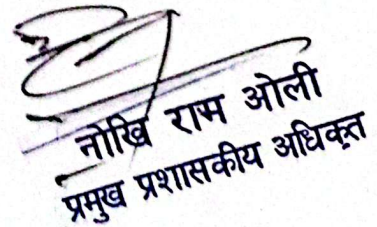 नोखि राम ओली
प्रमुख प्रशासकीय अधिकृत